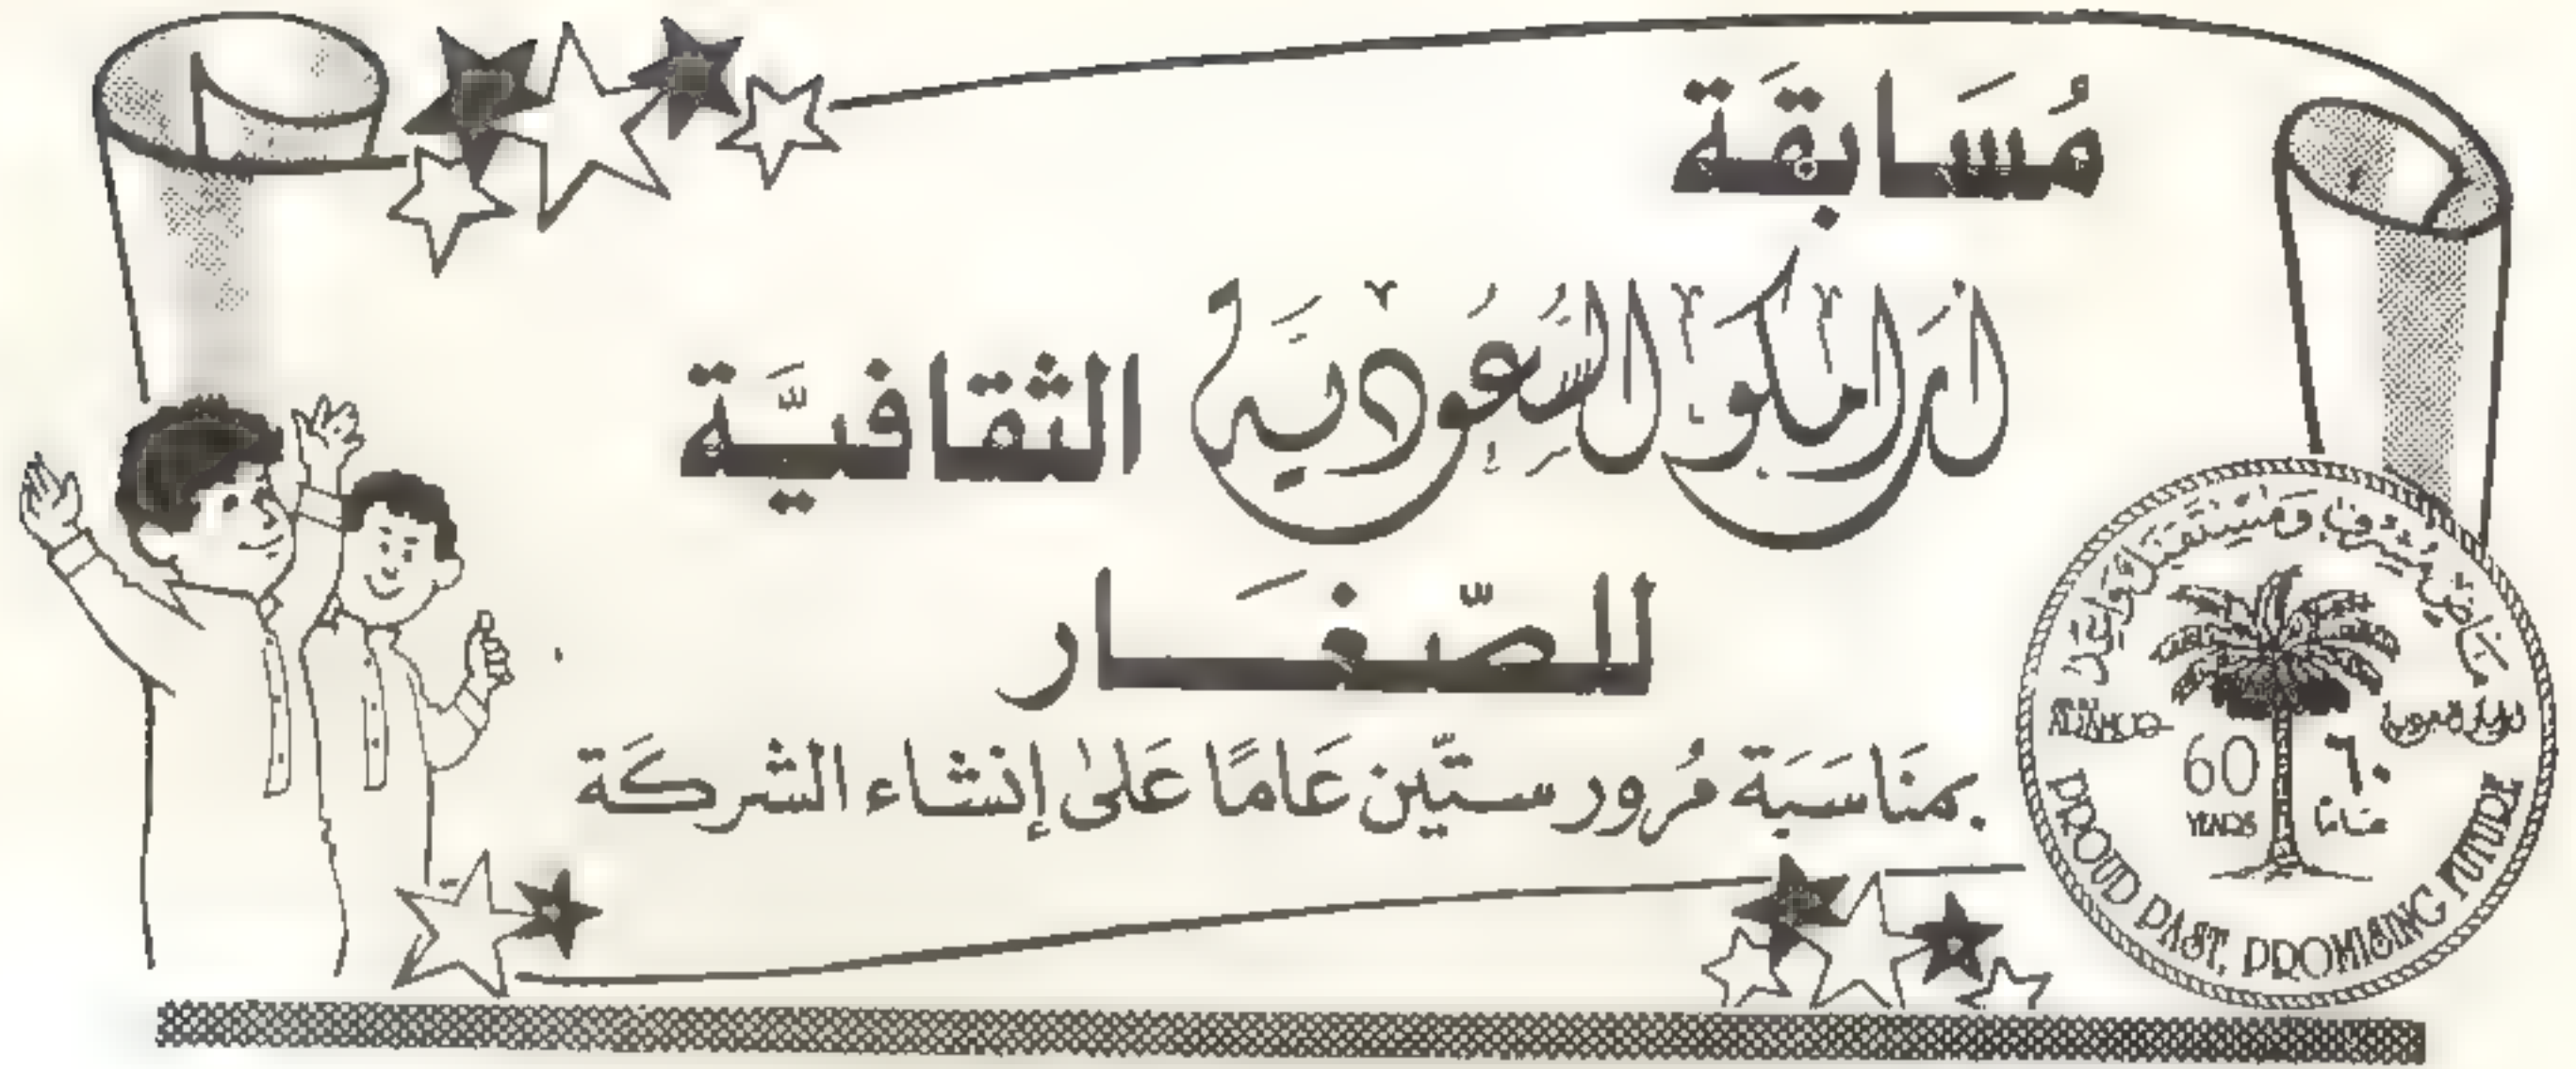 مُسَابقَة
أرامكو السعودية الثقافيَّة
للصّغَار
بمنَاسَبَة مُرور ستّين عَامًا عَلىٰ إنشاء الشركَة
مَاضٍ مشرف ومستقبل واعد
60
YEARS
٦٠
عامًا
PROUD PAST, PROMISING FUTURE